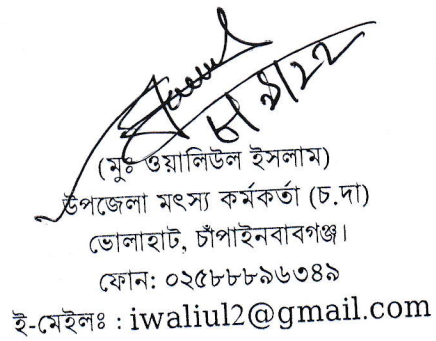 ৮/৯/২২
(মুঃ ওয়ালিউল ইসলাম)
উপজেলা মৎস্য কর্মকর্তা (চ.দা)
ভোলাহাট, চাঁপাইনবাবগঞ্জ।
ফোন: ০২৫৮৮৮৯৬৩৪৯
ই-মেইলঃ : iwaliul2@gmail.com